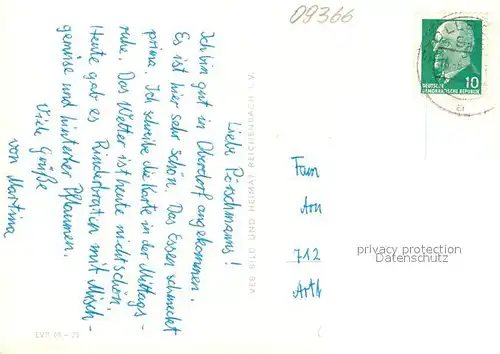 09366
Liebe Pörschmanns!
Ich bin gut in Oberdorf angekommen.
Es ist hier sehr schön. Das Essen schmeckt
prima. Ich schreibe die Karte in der Mittags-
ruhe. Das Wetter ist heute nicht schön.
Heute gab es Rinderbraten mit Misch-
gemüse und hinterher Pflaumen.
Viele Grüße
von Martina
VEB BILD UND HEIMAT REICHENBACH I. V.
DEUTSCHE
DEMOKRATISCHE REPUBLIK
10
a
Fam
712
Arth
privacy protection
Datenschutz